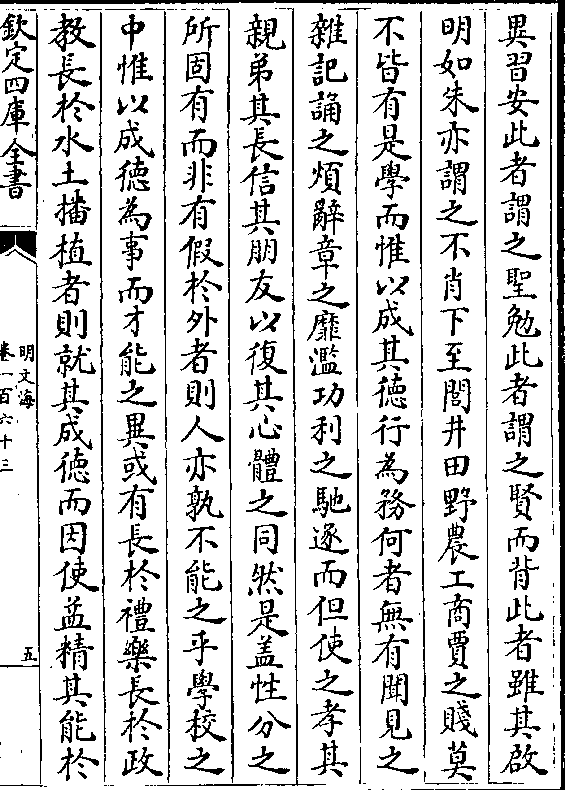 異習安此者謂之聖勉此者謂之賢而背此者雖其啟
明如朱亦謂之不肖下至閭井田野農工商賈之賤莫
不皆有是學而惟以成其徳行為務何者無有聞見之
雜記誦之煩辭章之靡濫功利之馳逐而但使之孝其
親弟其長信其朋友以復其心體之同然是葢性分之
所固有而非有假於外者則人亦孰不能之乎學校之
中惟以成徳為事而才能之異或有長於禮樂長於政
教長於水土播植者則就其成徳而因使益精其能於
欽定四庫全書
明文海
卷一百六十三
五